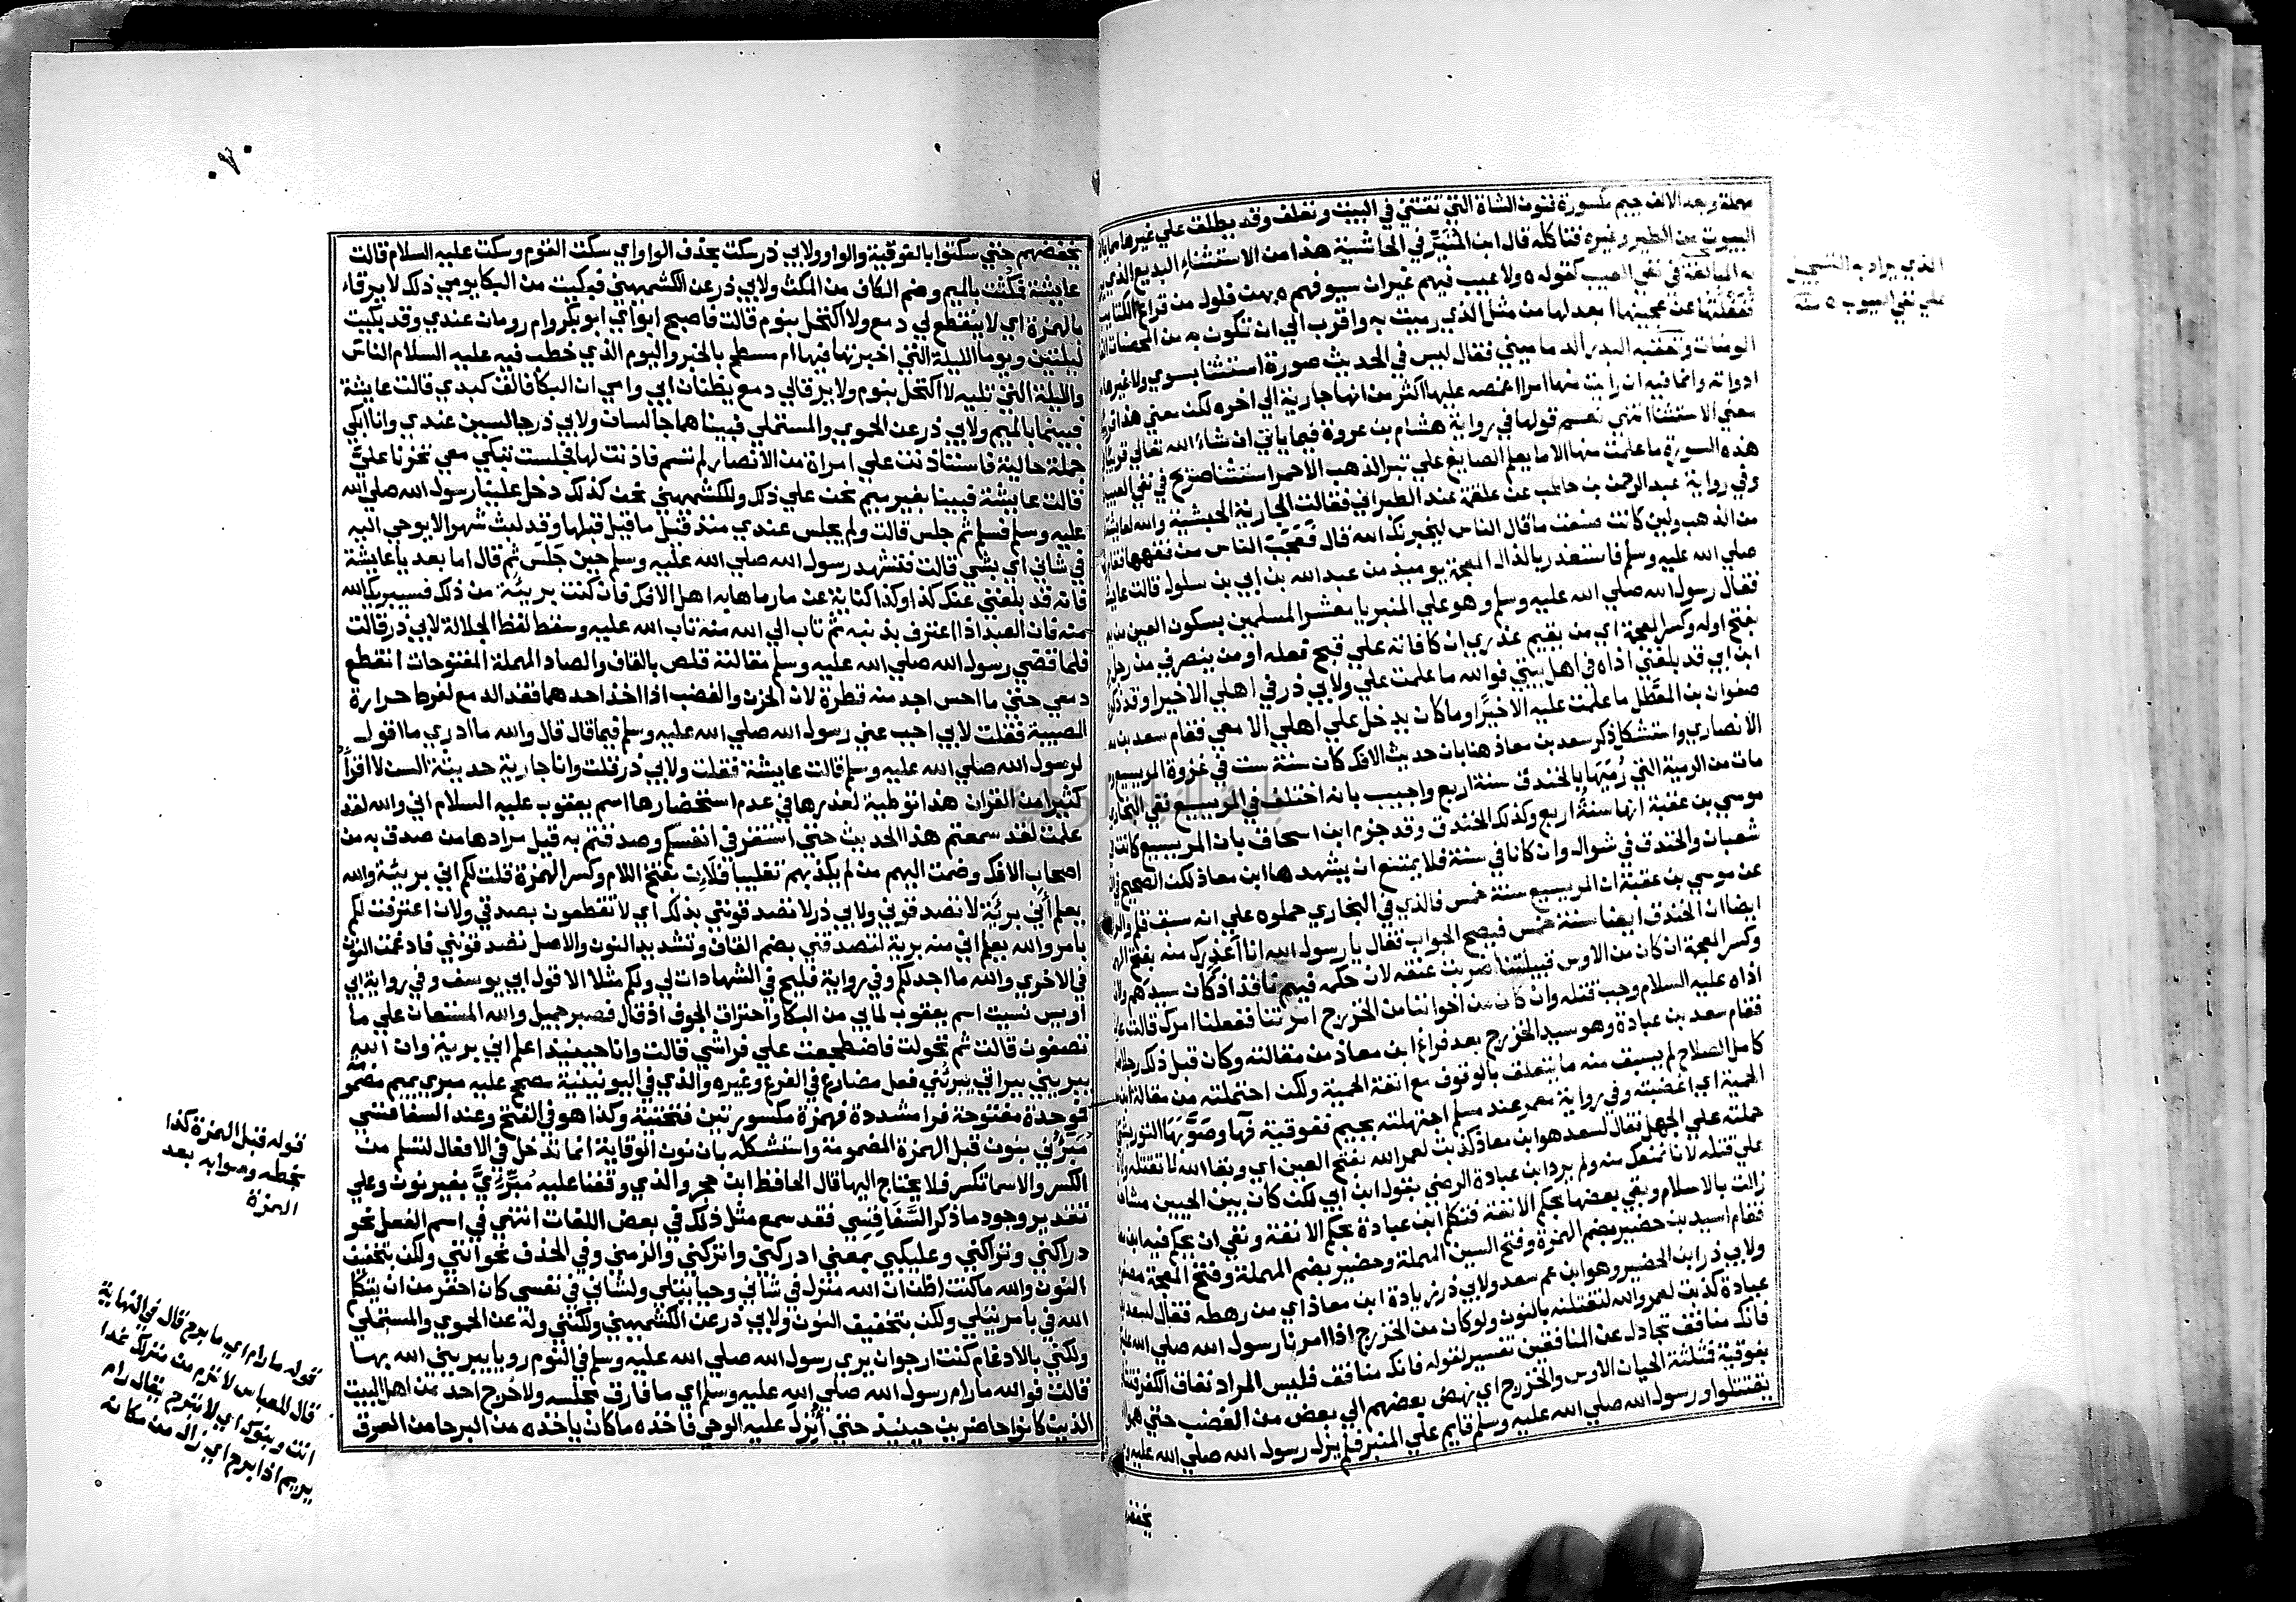 مهملة وبعد الالف جيم مكسورة فنون الشاة التي تقتني في البيت وتعلف وقد يطلق علي غيرها مما يالف
البيوت من الطير وغيره فتاكله قال ابن المنير في الحاشية هذا من الاستثناء البديع الذي
به المبالغة في نفي العيب كقوله ولا عيب فيهم غير ان سيوفهم بهن فلول من قراع الكتايب
فغفلتها عن عجينها ابعد لها من مثل الذي رميت به واقرب الي ان تكون به من المحصنات
المومنات وتعقبه البدر الدماميني فقال ليس في الحديث صورة استثنا بسوي ولا غيرها من
ادواته وانما فيه ان رايت منها امرا اغمصه عليها اكثر من انها جارية الي اخره لكن معني هذا قريب
معني الاستثنا انتهي نعم قولها في رواية هشام بن عروة فيما ياتي ان شاء الله تعالي قريبا
هذه السورة ما علمت منها الا ما يعلم الصايغ علي تبر الذهب الاحمر استثنا صريح في نفي العيب
وفي رواية عبد الرحمن بن حاطب عن علقمة عند الطبراني فقالت الجارية الحبشية والله لعايشة
من الذهب ولين كانت صنعت ما قال الناس ليخبرنك الله قال فعجب الناس من فقهها فقام
صلي الله عليه وسلم فاستعذر بالذال المعجمة يوميذ من عبد الله بن ابي بن سلول قالت عايشة
فقال رسول الله صلي الله عليه وسلم وهو علي المنبر يا معشر المسلمين بسكون العين من
بفتح اوله وكسر المعجمة اي من يقيم عذري ان كافاته علي قبح فعله او من ينصرني من رجل
ابن ابي قد بلغني اذاه في اهل بيتي فوالله ما علمت علي ولابي ذر في اهلي الا خيرا وقد ذكروا
صفوان بن المعطل ما علمت عليه الا خيرا وما كان يدخل علي اهلي الا معي فقام سعد بن معاذ
الانصاري واستشكل ذكر سعد بن معاذ هنا بان حديث الافك كان سنة ست في غزوة المريسيع
مات من الرمية التي رميها بالخندق سنة اربع واجيب بانه اختلف في المريسيع ففي البخاري
موسي بن عقبة انها سنة اربع وكذلك الخندق وقد جزم ابن اسحاق بان المريسيع كانت في
شعبان والخندق في شوال وان كانا في سنة فلا يمتنع ان يشهدها ابن معاذ لكن الصحيح في
عن موسي بن عقبة ان المريسيع سنة خمس فالذي في البخاري حملوه علي انه سبق قلم والراجح
ايضا ان الخندق ايضا سنة خمس فيصح الجواب فقال يا رسول الله انا اعذرك منه بفتح الهمزة
وكسر المعجمة ان كان من الاوس قبيلتنا ضربت عنقه لان حكمه فيهم نافذ اذ كان سيدهم ولان
اذاه عليه السلام وجب قتله وان كان من اخواننا من الخزرج امرتنا ففعلنا امرك قالت عايشة
فقام سعد بن عبادة وهو سيد الخزرج بعد فراغ ابن معاذ من مقالته وكان قبل ذلك رجلا صالحا
كامل الصلاح لم يسبق منه ما يتعلق بالوقوف مع انفة الحمية ولكن احتملته من مقالة ابن معاذ
الحمية اي اغضبته وفي رواية معمر عند مسلم اجتهلته بجيم ففوقية فها وصوبها التوربشتي
حملته علي الجهل فقال لسعد هو ابن معاذ كذبت لعمر الله بفتح العين اي وبقا الله لا تقتله
علي قتله لانا نمنعك منه ولم يرد ابن عبادة الرضي بقول ابن ابي لكن كان بين الحيين مشاحنة
زالت بالاسلام وبقي بعضها بحكم الانفة فتكلم ابن عبادة بحكم الانفة ونفي ان يحكم فيه ابن معاذ
فقام اسيد بن حضير بضم الهمزة وفتح السين المهملة وحضير بضم المهملة وفتح المعجمة مصغرين
ولابي ذر ابن الحضير وهو ابن عم سعد ولابي ذر زيادة ابن معاذ اي من رهطه فقال لسعد بن
عبادة كذبت لعمر والله لنقتلنه بالنون ولو كان من الخزرج اذا امرنا رسول الله صلي الله عليه
فانك منافق تجادل عن المنافقين تفسير لقوله فانك منافق فليس المراد نفاق الكفر فتثاور
بفوقية فمثلثة الحيان الاوس والخزرج اي نهض بعضهم الي بعض من الغضب حتي هموا ان
يقتتلوا ورسول الله صلي الله عليه وسلم قايم علي المنبر فلم يزل رسول الله صلي الله عليه وسلم
يخفضهم
الذي يراد به التسجيل
علي نفي العيوب
يخفضهم حتي سكتوا بالفوقية والواو ولابي ذر سكت بحذف الواو اي سكت القوم وسكت عليه السلام قالت
عايشة فمكثت بالميم وضم الكاف من المكث ولابي ذر عن الكشميهني فبكيت من البكا يومي ذلك لا يرقاء
بالهمزة اي لا ينقطع لي دمع ولا اكتحل بنوم قالت فاصبح ابواي ابو بكر وام رومان عندي وقد بكيت
ليلتين ويوما الليلة التي اخبرتها فيها ام مسطح بالخبر واليوم الذي خطب فيه عليه السلام الناس
والليلة التي تليه لا اكتحل بنوم ولا يرقالي دمع يظنان ابي وامي ان البكا فالق كبدي قالت عايشة
فبينما بالميم ولابي ذر عن الحموي والمستملي فبينا هما جالسان ولابي ذر جالسين عندي وانا ابكي
جملة حالية فاستاذنت علي امراة من الانصار لم تسم فاذنت لها فجلست تبكي معي تحزنا علي
قالت عايشة فبينا بغير ميم نحن علي ذلك وللكشميهني نحن كذلك دخل علينا رسول الله صلي الله
عليه وسلم فسلم ثم جلس قالت ولم يجلس عندي منذ قيل ما قيل قبلها وقد لبث شهرا لا يوحي اليه
في شاني اي بشي قالت فتشهد رسول الله صلي الله عليه وسلم حين جلس ثم قال اما بعد يا عايشة
فانه قد بلغني عنك كذا وكذا كناية عن ما رماها به اهل الافك فان كنت بريئة من ذلك فسيبريك الله
منه فان العبد اذا اعترف بذنبه ثم تاب الي الله منه تاب الله عليه وسقط لفظ الجلالة لابي ذر قالت
فلما قضي رسول الله صلي الله عليه وسلم مقالته قلص بالقاف والصاد المهملة المفتوحات انقطع
دمعي حتي ما احس اجد منه قطرة لان الحزن والغضب اذا اخذ احدهما فقد الدمع لفرط حرارة
المصيبة فقلت لابي اجب عني رسول الله صلي الله عليه وسلم فيما قال قال والله ما ادري ما اقول
لرسول الله صلي الله عليه وسلم قالت عايشة فقلت ولابي ذر قلت وانا جارية حديثة السن لا اقرأ
كثيرا من القران هذا توطية لعذرها في عدم استحضارها اسم يعقوب عليه السلام اني والله لقد
علمت لقد سمعتم هذا الحديث حتي استقر في انفسكم وصدقتم به قيل مرادها من صدق به من
اصحاب الافك وضمت اليهم من لم يكذبهم تغليبا فلان بفتح اللام وكسر الهمزة قلت لكم اني بريئة والله
يعلم أني بريئة لا تصدقوني ولابي ذر لا تصدقونني بذلك اي لا تقطعون بصدقي ولان اعترفت لكم
بامر والله يعلم اني منه برية لتصدقني بضم القاف وتشديد النون والاصل تصدقونني فادغمت النون
في الاخري والله ما اجد لكم وفي رواية فليح في الشهادات لي ولكم مثلا الا قول ابي يوسف وفي رواية ابي
اويس نسيت اسم يعقوب لما بي من البكا واحتراق الجوف اذ قال فصبر جميل والله المستعان علي ما
تصفون قالت ثم تحولت فاضطجعت علي فراشي قالت وانا حينيذ اعلم اني برية وان الله
يبريني ببراتي يبرئني فعل مضارع في الفرع وغيره والذي في اليونينية مصحح عليه مبري بميم مضمومة
فوحدة مفتوحة فرا مشددة فهمزة مكسورتين فتحتية وكذا هو في الفتح وعند السفاقسي
مبرئني بنون قبل الهمزة المضمومة واستشكله بان نون الوقاية انما تدخل في الافعال لتسلم من
الكسر والاسما تكسر فلا يحتاج اليها قال الحافظ ابن حجر والذي وقفنا عليه مُبَرِّئِيَّ بغير نون وعلي
تقدير وجود ما ذكر السَّفَاقسِي فقد سمع مثل ذلك في بعض اللغات انتهي في اسم الفعل نحو
دراكني وتراكني وعليكني بمعني ادركني واتركني والزمني وفي الحذف نحو انني ولكن بتخفيف
النون والله ما كنت اظن ان الله منزل في شاني وحيا يتلي ولشاني في نفسي كان احقر من ان يتكلم
الله في بامر يتلي ولكن بتخفيف النون ولابي ذر عن الكشميهني ولكنني وله عن الحموي والمستملي
ولكني بالادغام كنت ارجو ان يري رسول الله صلي الله عليه وسلم في النوم رويا يبريني الله بها
قالت فوالله ما رام رسول الله صلي الله عليه وسلم اي ما فارق مجلسه ولا خرج احد من اهل البيت
الذين كانوا حاضرين حينيذ حتي أُنزل عليه الوحي فاخذه ما كان ياخذه من البرحا من العرق
قوله قبل الهمزة كذا
بخطه وصوابه بعد
الهمزة
قوله ما رام اي ما برح قال في النهاية
قال للعباس لا ترم من منزلك غدا
انت وبنوك اي لا تبرح يقال رام
يريم اذا برح اي زال من مكانه